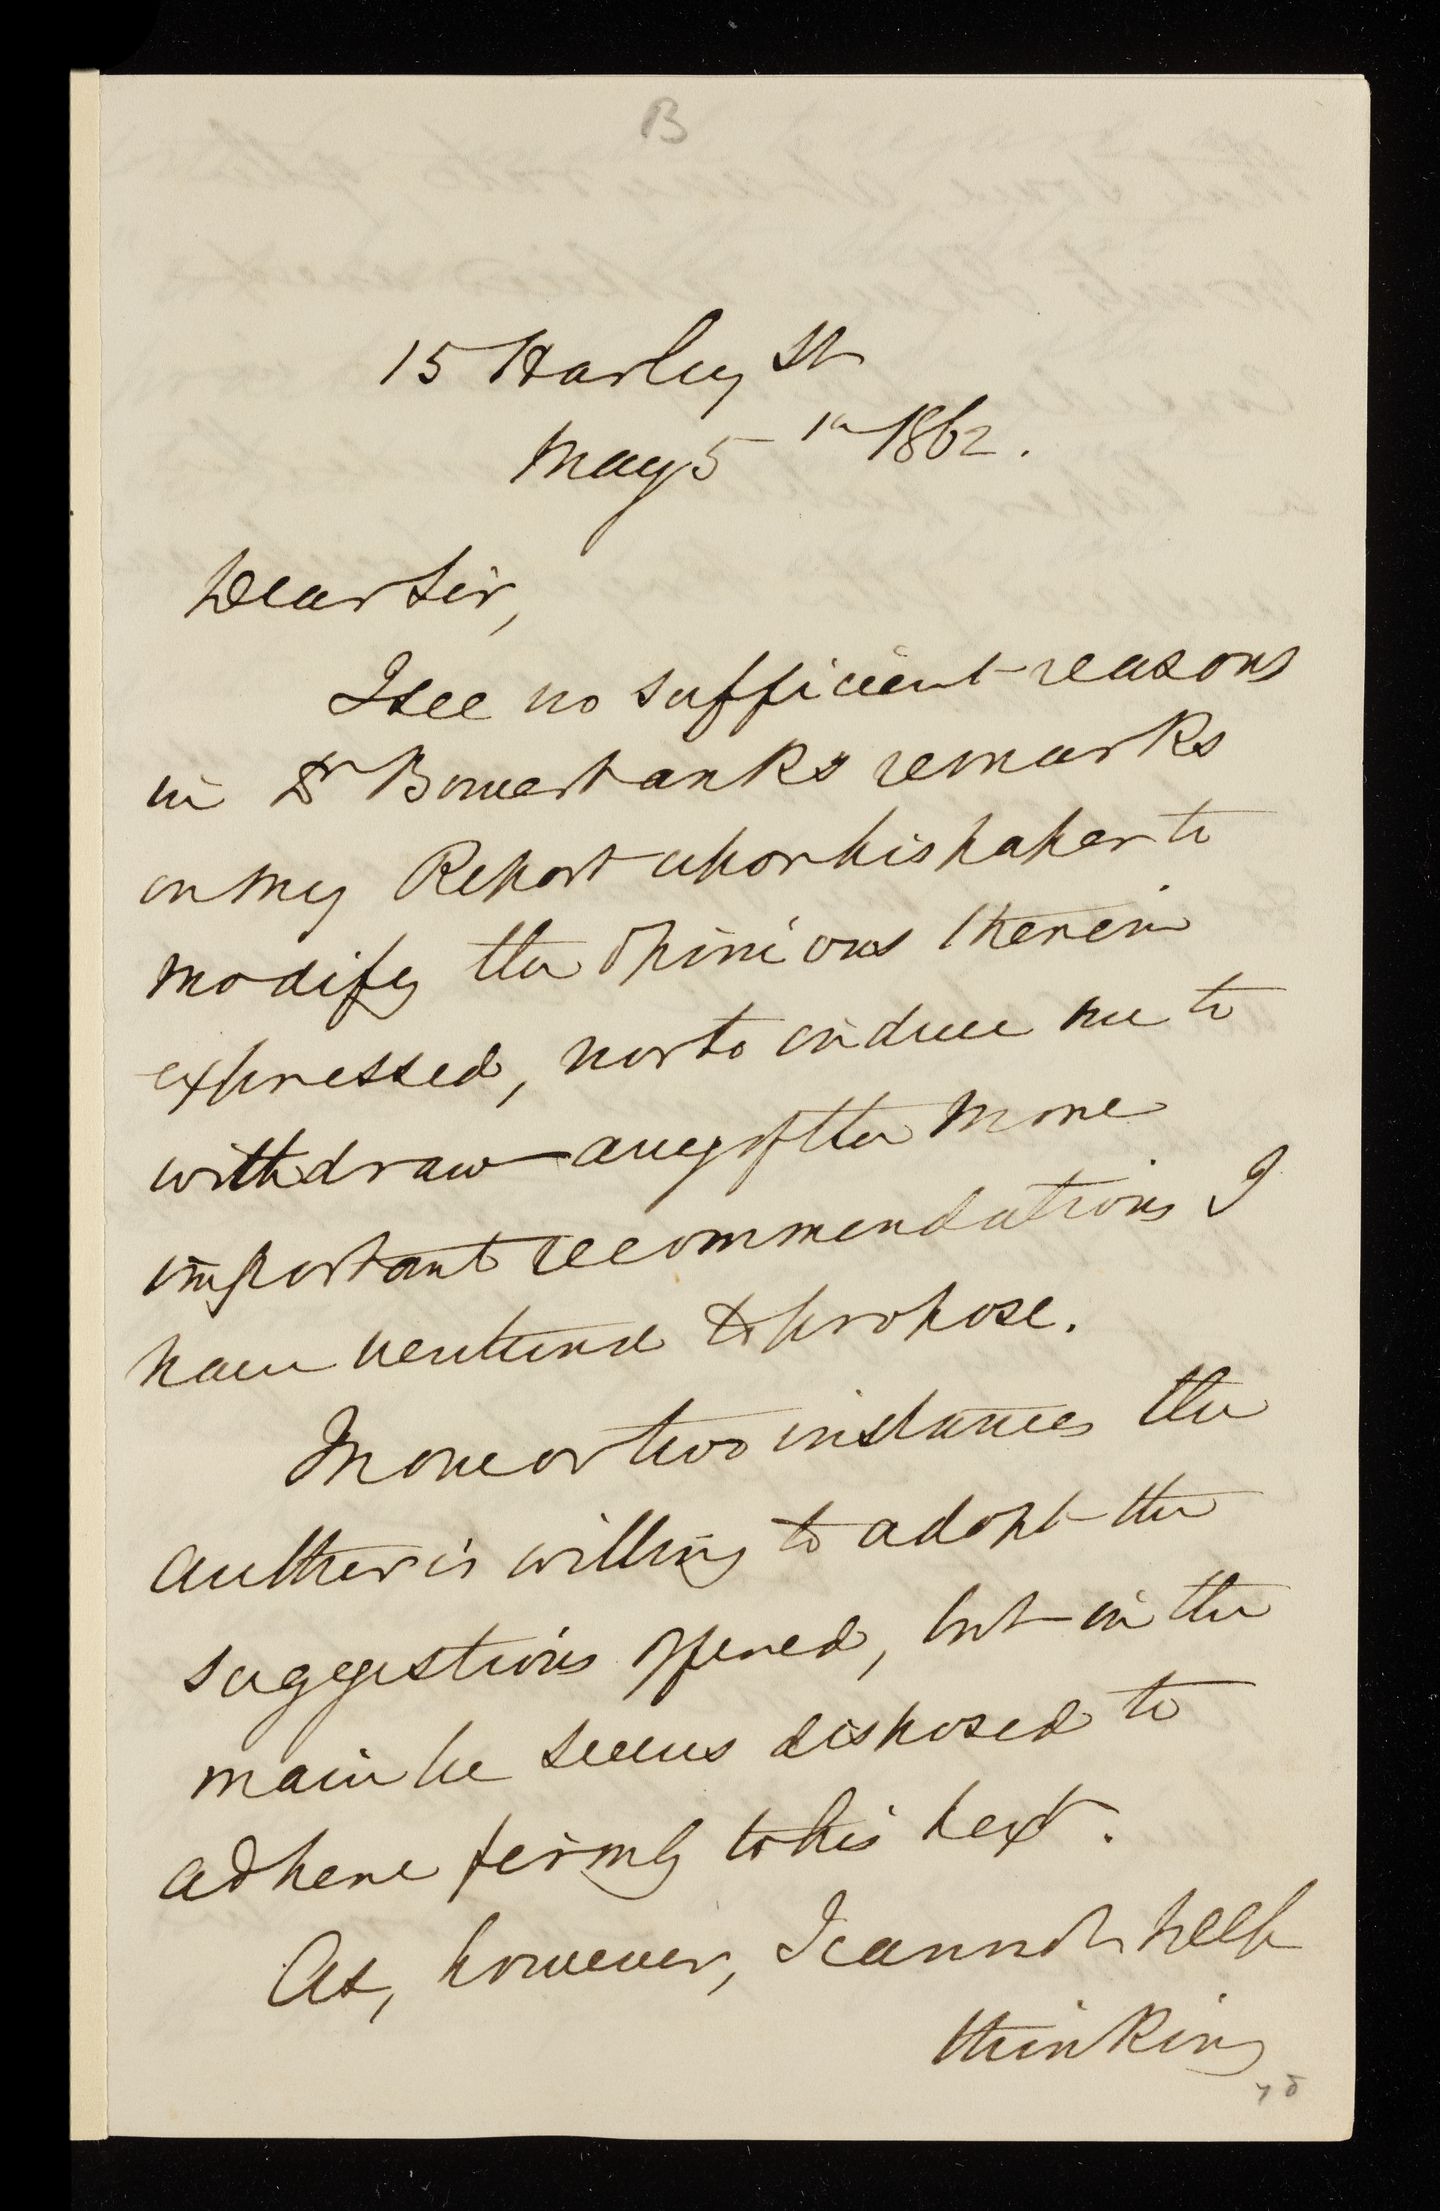 B
15 Harley St
May 5th 1862.
Dear Sir,
I see no sufficient reasons
in Dr Bowerbanks remarks
on my Report upon his paper to
modify the opinions therein
expressed, nor to induce me to
withdraw any of the more
important recommendations I
have ventured to propose.
In one or two instances the
author is willing to adopt the
suggestions offered, but in the
main he seems disposed to
adhere firmly to his text.
As, however, I cannot help
thinking